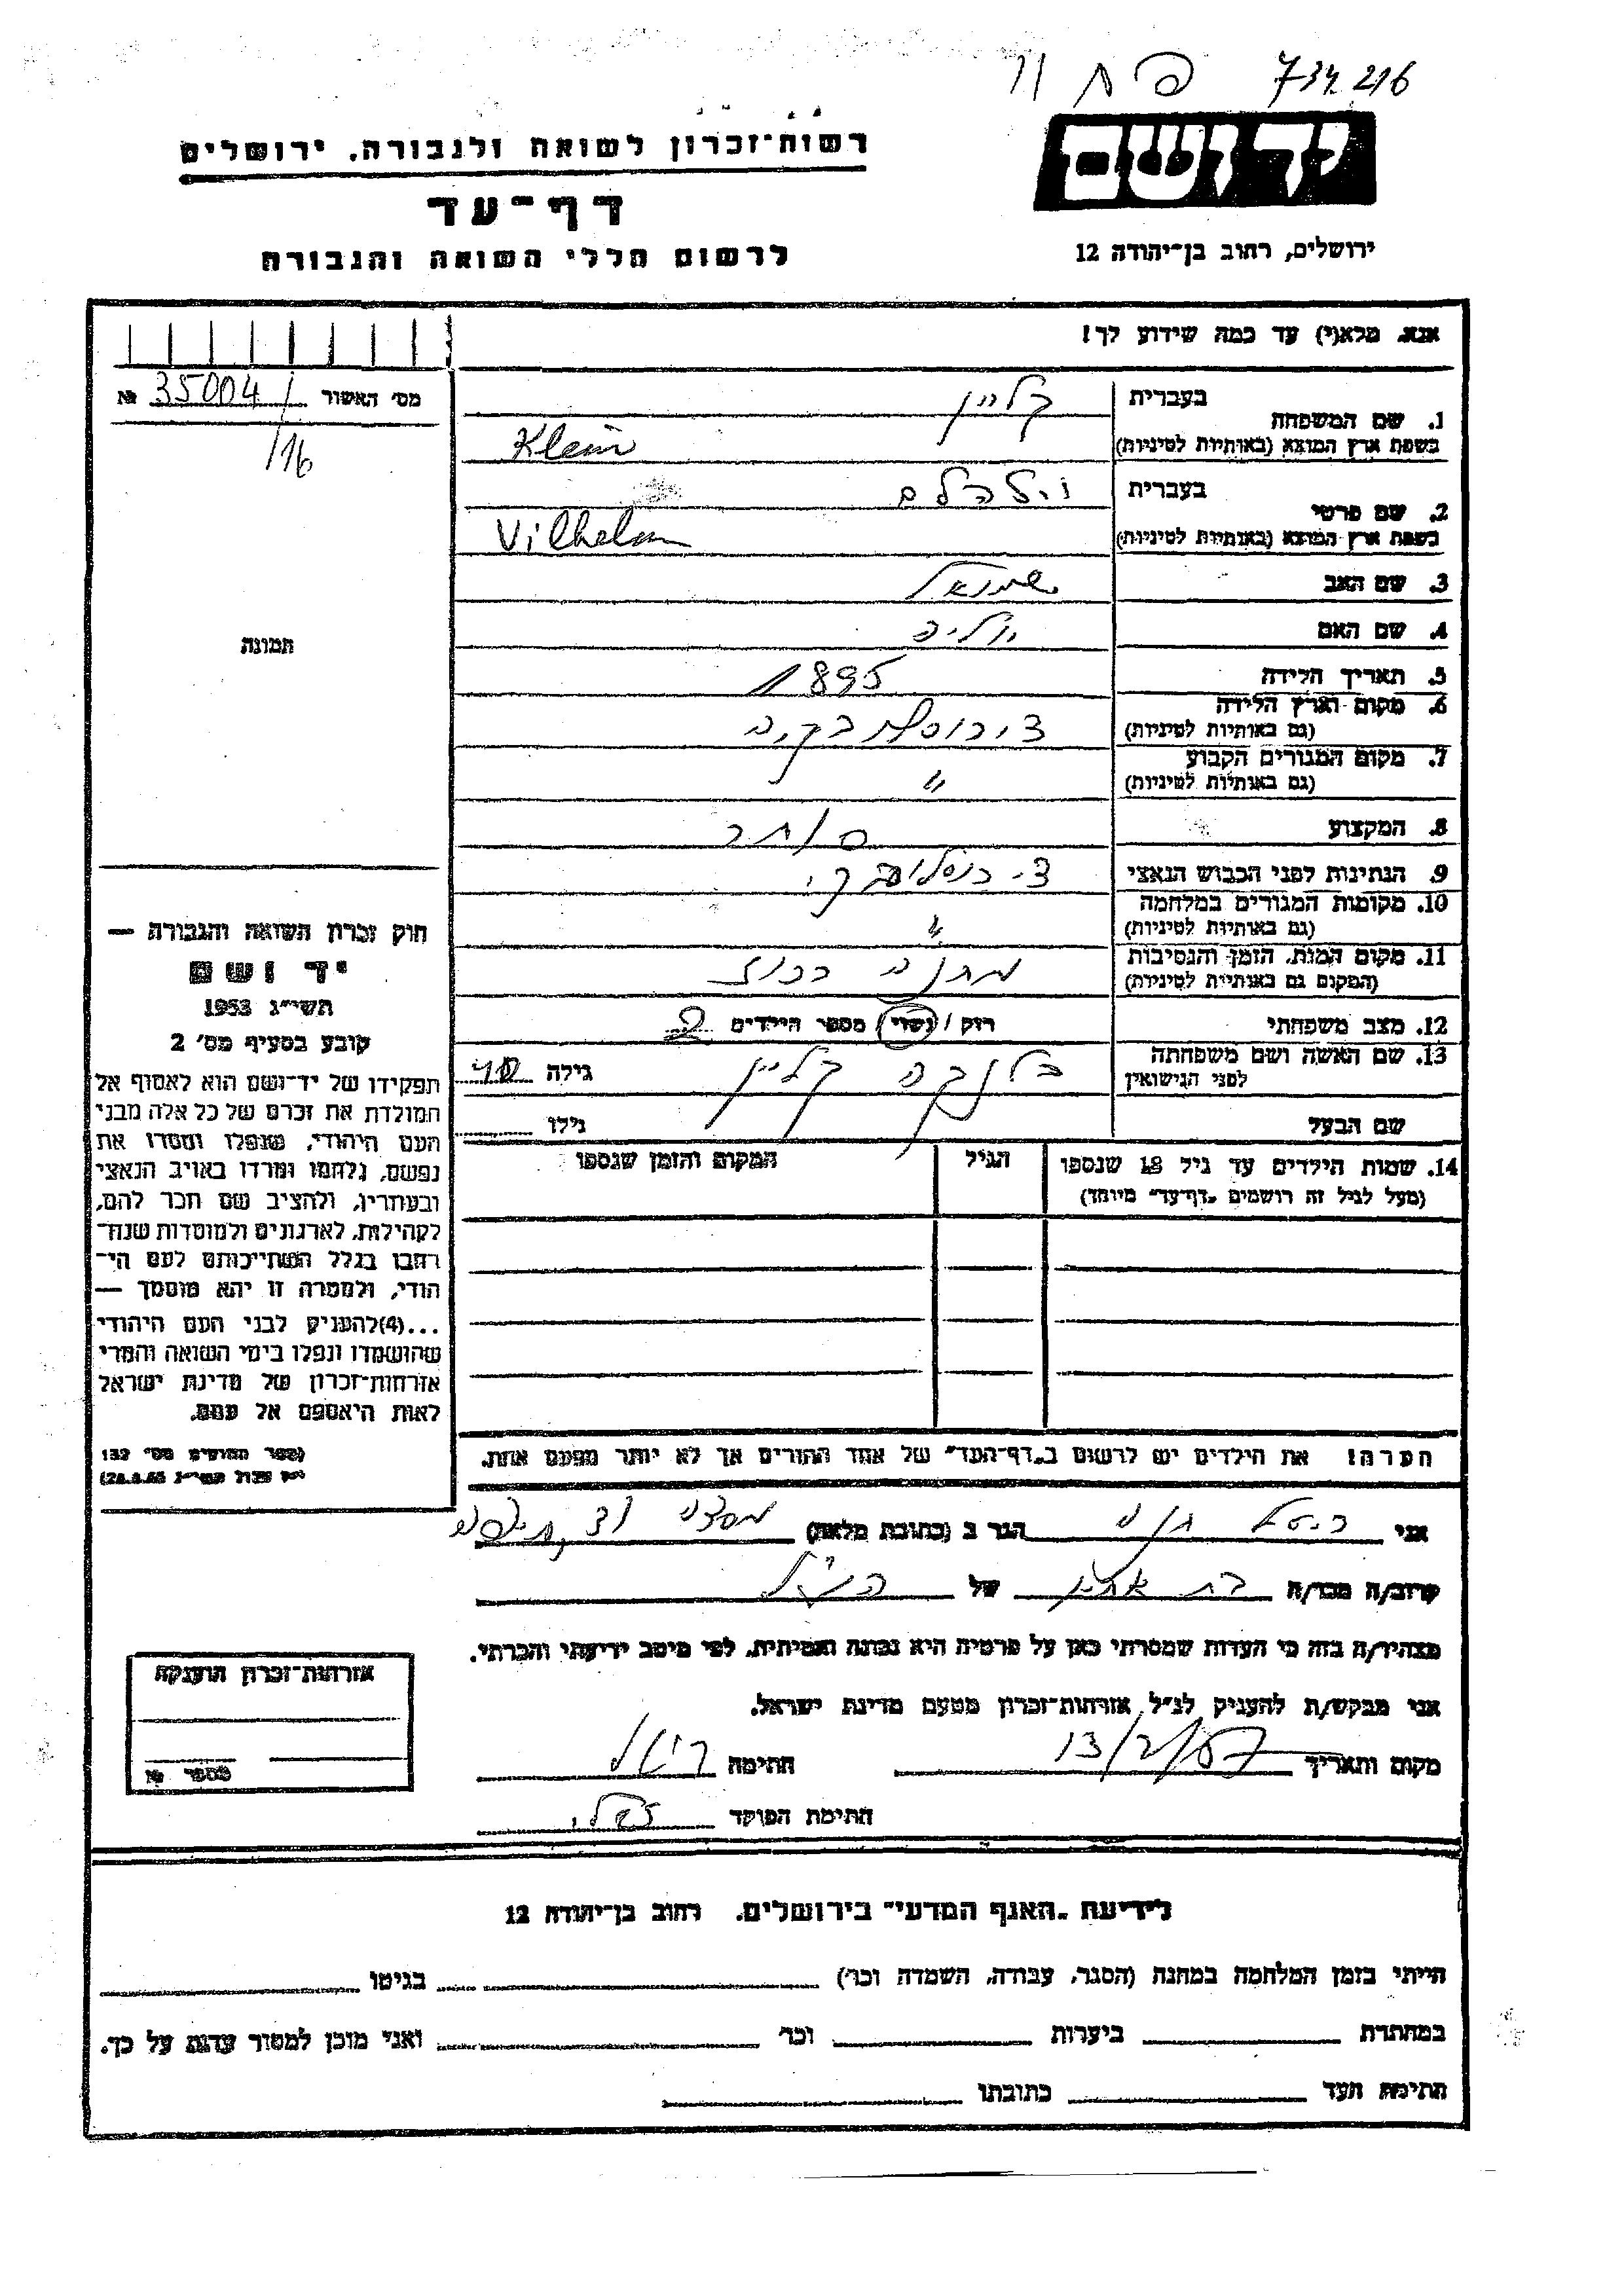 734216
יד ושם
ירושלים, רחוב בן־יהודה 12
רשות־זכרון לשואה ולגבורה, ירושלים
דף־עד
לרשום חללי השואה והגבורה
אנא, מלא(י) עד כמה שידוע לך!
מס׳ האשור 35004 №
/16
תמונה
1. שם המשפחה
בעברית קליין
בשפת ארץ המוצא (באותיות לטיניות) Klein
2. שם פרטי
בעברית וילהלם
בשפת ארץ המוצא (באותיות לטיניות) Vilhelm
3. שם האב שמואל
4. שם האם יוליה
5. תאריך הלידה 1895
6. מקום וארץ הלידה
(גם באותיות לטיניות)
7. מקום המגורים הקבוע "
(גם באותיות לטיניות)
8. המקצוע סוחר
9. הנתינות לפני הכבוש הנאצי
10. מקומות המגורים במלחמה "
(גם באותיות לטיניות)
11. מקום המות, הזמן והנסיבות מחנה רכוז
(המקום גם באותיות לטיניות)
12. מצב משפחתי רוק / נשוי מספר הילדים 2
13. שם האשה ושם משפחתה בלנקה קליין גילה 40
לפני הנישואין
שם הבעל גילו
14. שמות הילדים עד גיל 18 שנספו הגיל המקום והזמן שנספו
(מעל לגיל זה רושמים „דף־עד״ מיוחד)
הערה: את הילדים יש לרשום ב„דף־העד״ של אחד ההורים אך לא יותר מפעם אחת.
חוק זכרון השואה והגבורה —
יד ושם
תשי״ג 1953
קובע בסעיף מס׳ 2
תפקידו של יד־ושם הוא לאסוף אל
המולדת את זכרם של כל אלה מבני
העם היהודי, שנפלו ומסרו את
נפשם, נלחמו ומרדו באויב הנאצי
ובעוזריו, ולהציב שם וזכר להם,
לקהילות, לארגונים ולמוסדות שנח־
רבו בגלל השתייכותם לעם הי־
הודי, ולמטרה זו יהא מוסמך —
...(4)להעניק לבני העם היהודי
שהושמדו ונפלו בימי השואה והמרי
אזרחות־זכרון של מדינת ישראל
לאות היאספם אל עמם.
(ספר החוקים מס׳ 132
אני הגר ב (כתובת מלאה)
קרוב/ה מכר/ה בת אחיו של הנ״ל
מצהיר/ה בזה כי העדות שמסרתי כאן על פרטיה היא נכונה ואמיתית, לפי מיטב ידיעתי והכרתי.
אני מבקש/ת להעניק לנ״ל אזרחות־זכרון מטעם מדינת ישראל.
מקום ותאריך 13/2/57 חתימה
חתימת הפוקד
אזרחות־זכרון הוענקה
מספר №
לידיעת „האגף המדעי״ בירושלים, רחוב בן־יהודה 12
הייתי בזמן המלחמה במחנה (הסגר, עבודה, השמדה וכו׳) בגיטו
במחתרת ביערות וכו׳ ואני מוכן למסור עדות על כך.
חתימת העד כתובתו